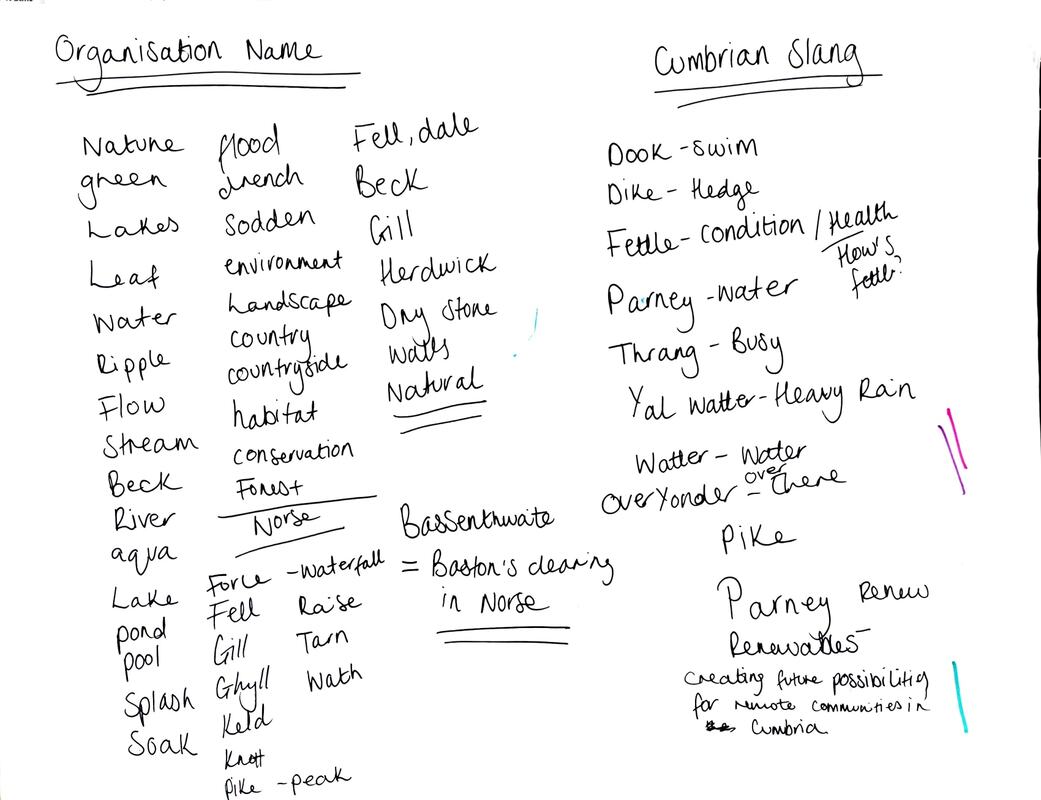 Organisation Name
Nature
green
Lakes
Leaf
Water
Ripple
Flow
Stream
Beck
River
aqua
Lake
pond
pool
Splash
Soak
flood
drench
Sodden
environment
Landscape
country
countryside
habitat
conservation
Forest
Norse
Force - waterfall
Fell
Gill
Ghyll
Keld
Knott
Pike - peak
Raise
Tarn
Wath
Fell, dale
Beck
Gill
Herdwick
Dry Stone
Walls
Natural
Bassenthwaite
= Baston's clearing
in Norse
Cumbrian Slang
Dook - Swim
Dike - Hedge
Fettle - condition / Health
How's
fettle?
Parney - water
Thrang - Busy
Yal Watter - Heavy Rain
Watter - Water
OverYonder - over there
Pike
Parney Renew
Renewables
creating future possibilities
for remote communities in
Cumbria